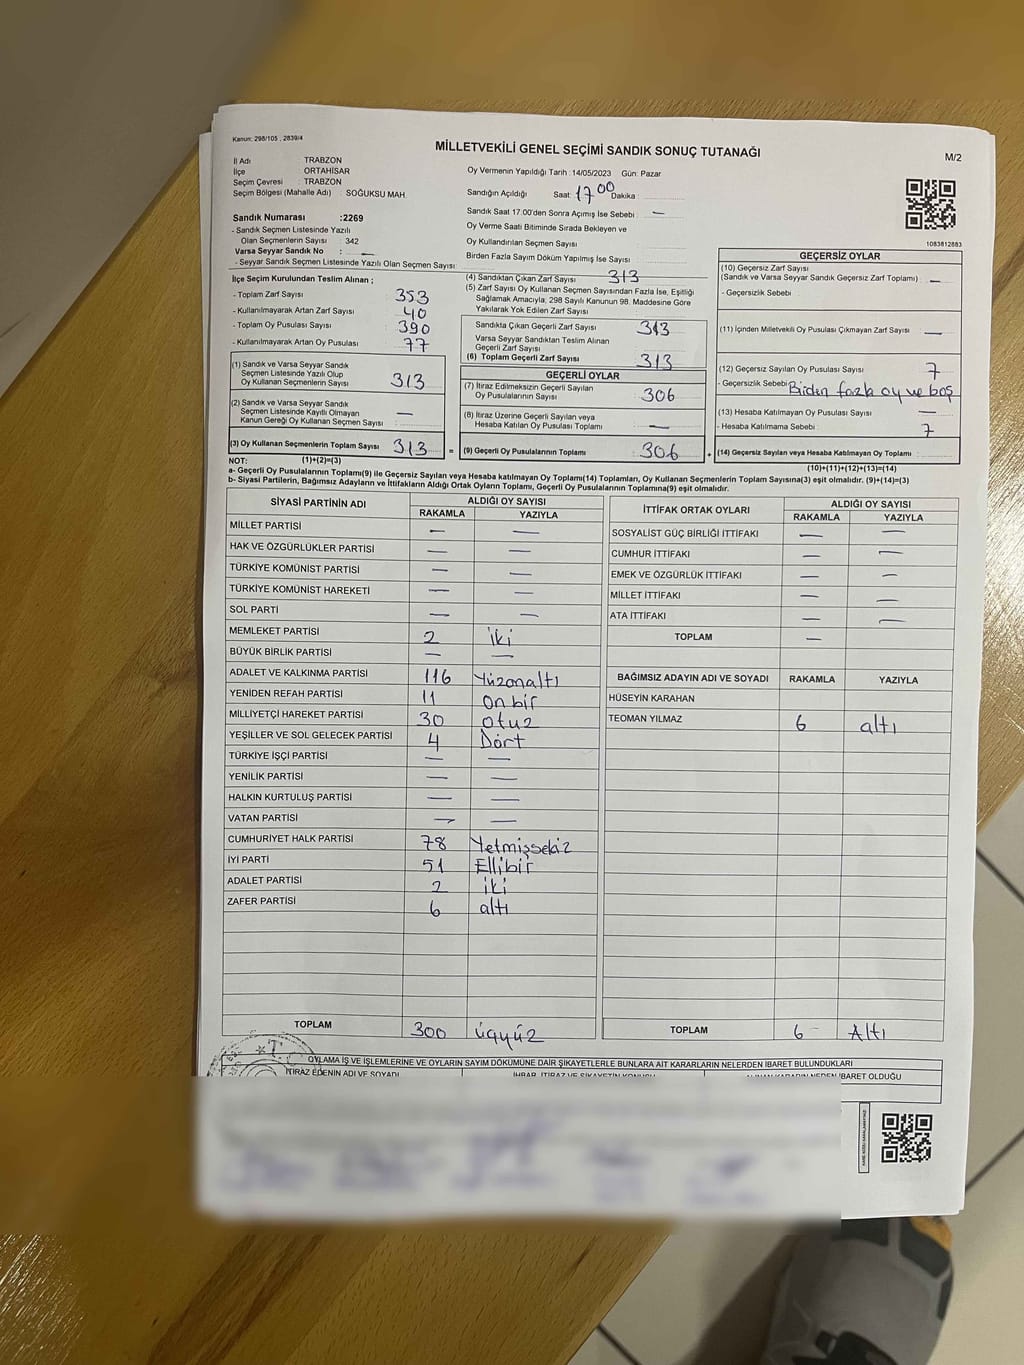 Kanun: 298/105 , 2839/4
MİLLETVEKİLİ GENEL SEÇİMİ SANDIK SONUÇ TUTANAĞI
M/2
İl Adı TRABZON
İlçe ORTAHİSAR
Seçim Çevresi : TRABZON
Seçim Bölgesi (Mahalle Adı) SOĞUKSU MAH.
Oy Vermenin Yapıldığı Tarih : 14/05/2023 Gün: Pazar
Sandığın Açıldığı Saat: 17 00 Dakika :
Sandık Saat 17:00'den Sonra Açılmış İse Sebebi : —
Oy Verme Saati Bitiminde Sırada Bekleyen ve
Oy Kullandırılan Seçmen Sayısı
Birden Fazla Sayım Döküm Yapılmış İse Sayısı :
Sandık Numarası :2269
- Sandık Seçmen Listesinde Yazılı
Olan Seçmenlerin Sayısı : 342
Varsa Seyyar Sandık No : —
- Seyyar Sandık Seçmen Listesinde Yazılı Olan Seçmen Sayısı:
1083812883
İlçe Seçim Kurulundan Teslim Alınan ;
- Toplam Zarf Sayısı 353
- Kullanılmayarak Artan Zarf Sayısı 40
- Toplam Oy Pusulası Sayısı 390
- Kullanılmayarak Artan Oy Pusulası 77
(1) Sandık ve Varsa Seyyar Sandık
Seçmen Listesinde Yazılı Olup
Oy Kullanan Seçmenlerin Sayısı 313
(2) Sandık ve Varsa Seyyar Sandık
Seçmen Listesinde Kayıtlı Olmayan
Kanun Gereği Oy Kullanan Seçmen Sayısı : —
(3) Oy Kullanan Seçmenlerin Toplam Sayısı 313 =
(4) Sandıktan Çıkan Zarf Sayısı : 313
(5) Zarf Sayısı Oy Kullanan Seçmen Sayısından Fazla İse, Eşitliği
Sağlamak Amacıyla; 298 Sayılı Kanunun 98. Maddesine Göre
Yakılarak Yok Edilen Zarf Sayısı :
Sandıkta Çıkan Geçerli Zarf Sayısı 313
Varsa Seyyar Sandıktan Teslim Alınan
Geçerli Zarf Sayısı
(6) Toplam Geçerli Zarf Sayısı 313
GEÇERLİ OYLAR
(7) İtiraz Edilmeksizin Geçerli Sayılan
Oy Pusulalarının Sayısı 306
(8) İtiraz Üzerine Geçerli Sayılan veya
Hesaba Katılan Oy Pusulası Toplamı —
(9) Geçerli Oy Pusulalarının Toplamı 306 +
GEÇERSİZ OYLAR
(10) Geçersiz Zarf Sayısı
(Sandık ve Varsa Seyyar Sandık Geçersiz Zarf Toplamı) : —
- Geçersizlik Sebebi
(11) İçinden Milletvekili Oy Pusulası Çıkmayan Zarf Sayısı —
(12) Geçersiz Sayılan Oy Pusulası Sayısı 7
- Geçersizlik Sebebi : Birden fazla oy ve boş
(13) Hesaba Katılmayan Oy Pusulası Sayısı —
- Hesaba Katılmama Sebebi : 7
(14) Geçersiz Sayılan veya Hesaba Katılmayan Oy Toplamı :
NOT: (1)+(2)=(3)
(10)+(11)+(12)+(13)=(14)
a- Geçerli Oy Pusulalarının Toplamı(9) ile Geçersiz Sayılan veya Hesaba katılmayan Oy Toplamı(14) Toplamları, Oy Kullanan Seçmenlerin Toplam Sayısına(3) eşit olmalıdır. (9)+(14)=(3)
b- Siyasi Partilerin, Bağımsız Adayların ve İttifakların Aldığı Ortak Oyların Toplamı, Geçerli Oy Pusulalarının Toplamına(9) eşit olmalıdır.
SİYASİ PARTİNİN ADI ALDIĞI OY SAYISI
RAKAMLA YAZIYLA
MİLLET PARTİSİ — —
HAK VE ÖZGÜRLÜKLER PARTİSİ — —
TÜRKİYE KOMÜNİST PARTİSİ — —
TÜRKİYE KOMÜNİST HAREKETİ — —
SOL PARTİ — —
MEMLEKET PARTİSİ 2 iki
BÜYÜK BİRLİK PARTİSİ — —
ADALET VE KALKINMA PARTİSİ 116 Yüzonaltı
YENİDEN REFAH PARTİSİ 11 On bir
MİLLİYETÇİ HAREKET PARTİSİ 30 otuz
YEŞİLLER VE SOL GELECEK PARTİSİ 4 Dört
TÜRKİYE İŞÇİ PARTİSİ — —
YENİLİK PARTİSİ — —
HALKIN KURTULUŞ PARTİSİ — —
VATAN PARTİSİ — —
CUMHURİYET HALK PARTİSİ 78 Yetmişsekiz
İYİ PARTİ 51 Ellibir
ADALET PARTİSİ 2 iki
ZAFER PARTİSİ 6 altı
TOPLAM 300 üçyüz
İTTİFAK ORTAK OYLARI ALDIĞI OY SAYISI
RAKAMLA YAZIYLA
SOSYALİST GÜÇ BİRLİĞİ İTTİFAKI — —
CUMHUR İTTİFAKI — —
EMEK VE ÖZGÜRLÜK İTTİFAKI — —
MİLLET İTTİFAKI — —
ATA İTTİFAKI — —
TOPLAM —
BAĞIMSIZ ADAYIN ADI VE SOYADI RAKAMLA YAZIYLA
HÜSEYİN KARAHAN
TEOMAN YILMAZ 6 altı
TOPLAM 6 Altı
OYLAMA İŞ VE İŞLEMLERİNE VE OYLARIN SAYIM DÖKÜMÜNE DAİR ŞİKAYETLERLE BUNLARA AİT KARARLARIN NELERDEN İBARET BULUNDUKLARI
İTİRAZ EDENİN ADI VE SOYADI İHBAR, İTİRAZ VE ŞİKAYETİN KONUSU ALINAN KARARIN NEDEN İBARET OLDUĞU